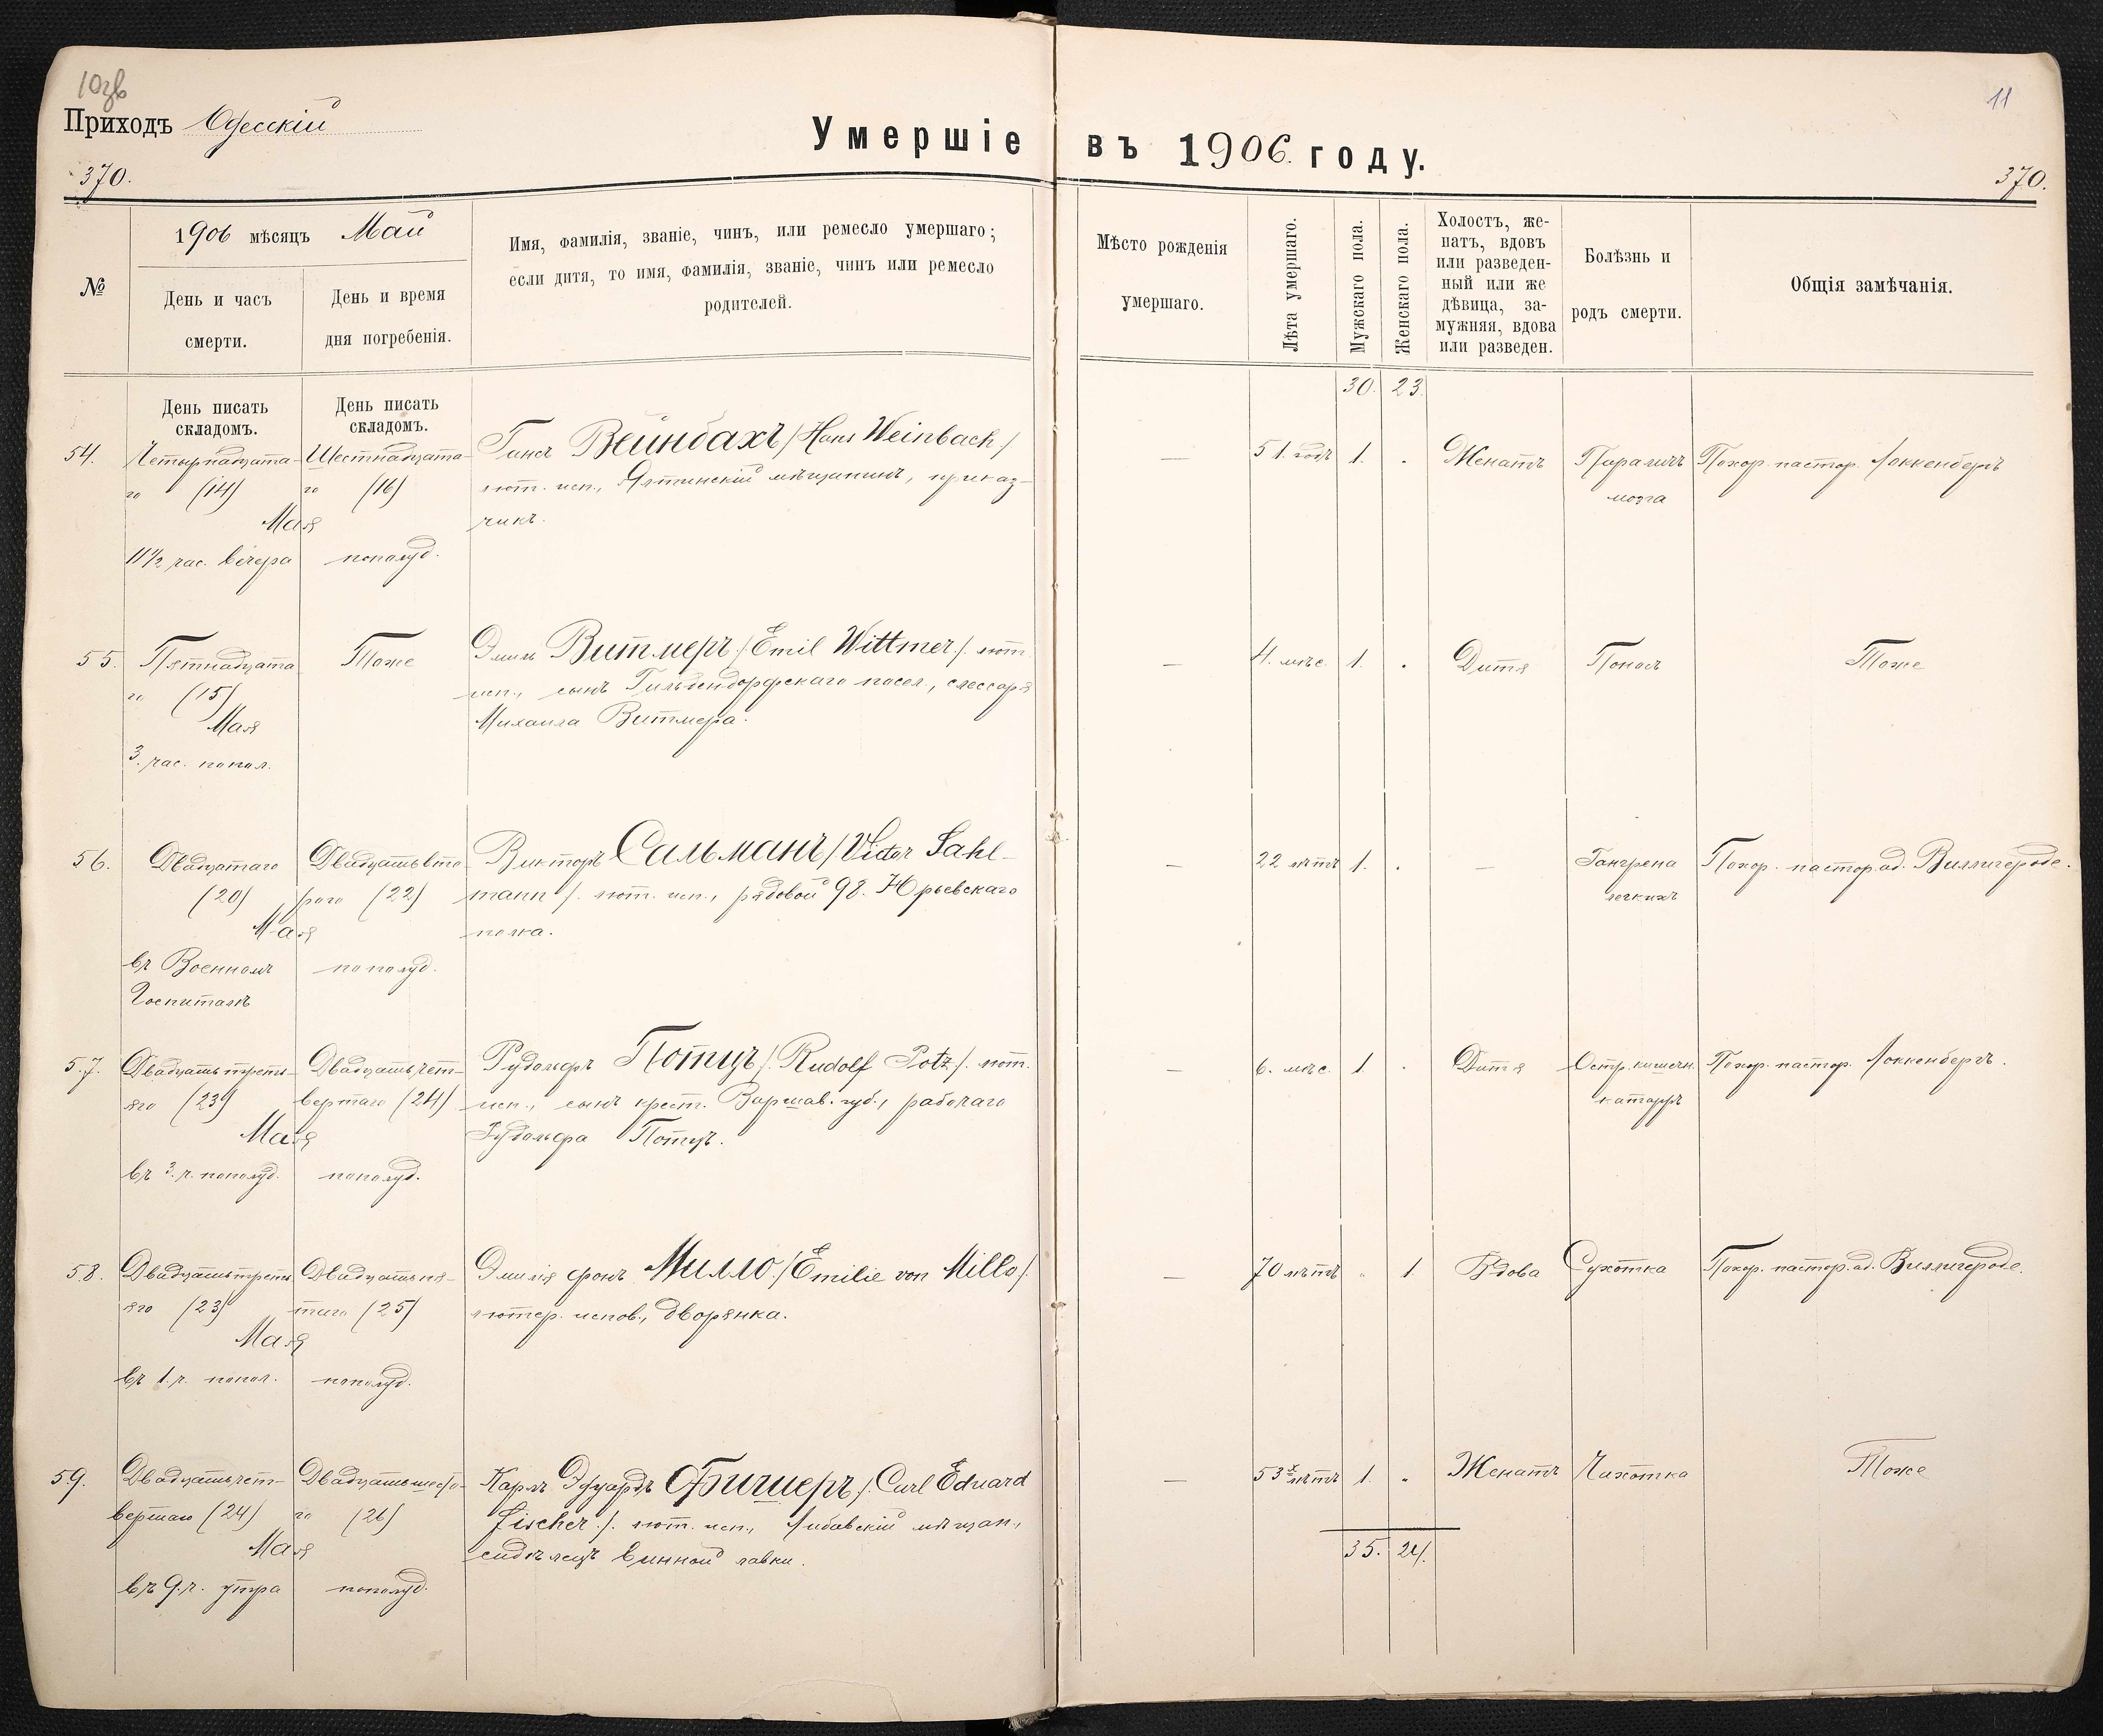 10зв
11
Приходъ Одесскій
Умершіе въ 1906. году.
370.
370.
№
1906 мѣсяцъ Май
День и часъ
смерти.
День и время
дня погребенія.
Имя, фамилія, званіе, чинъ, или ремесло умершаго;
если дитя, то имя, фамилія, званіе, чинъ или ремесло
родителей.
Мѣсто рожденія
умершаго.
Лѣта умершаго.
Мужскаго пола.
Женскаго пола.
Холостъ, же-
натъ, вдовъ
или разведен-
ный или же
дѣвица, за-
мужняя, вдова
или разведен.
Болѣзнь и
родъ смерти.
Общія замѣчанія.
День писать
складомъ.
День писать
складомъ.
30. 23.
54.
Четырнадцата-
го (14)
Мая
11½ час. вечера
Шестнадцата-
го (16)
пополуд.
Гансъ Вейнбахъ /Hans Weinbach/
лют. исп., Ялтинскій мѣщанинъ, приказ-
чикъ.
—
51. годъ
1.
.
Женатъ
Параличъ
мозга
Похор. пастор. Локкенбергъ
55.
Пятнадцата
го (15)
Мая
3. час. попол.
Тоже
Эмиль Витмеръ /Emil Wittmer/. лют.
исп., сынъ Гильдендорфскаго посел., слесаря
Михаила Витмера.
—
4. мѣс.
1.
.
Дитя
Поносъ
Тоже
56.
Двадцатаго
(20)
Мая
въ Военномъ
Госпиталѣ
Двадцатьвто-
раго (22)
пополуд.
Викторъ Сальманъ /Victor Sahl-
mann/. лют. исп., рядовой 98. Юрьевскаго
полка.
—
22 лѣтъ
1.
.
—
Гангрена
легкихъ
Похор. пастор. ад. Виллигероде.
57.
Двадцатьтреть-
яго (23)
Мая
въ 3. ч. пополуд.
Двадцатьчет-
вертаго (24)
пополуд.
Рудольфъ Потцъ /. Rudolf Potz/. лют.
исп., сынъ крест. Варшав. губ., рабочаго
Рудольфа Потцъ.
—
6. мѣс.
1.
.
Дитя
Остр. кишечн.
катарръ
Похор. пастор. Локкенбергъ.
58.
Двадцатьтреть
яго (23)
Мая
въ 1. ч. попол.
Двадцатьпя-
таго (25)
пополуд.
Эмилія фонъ Милло. /Emilie von Millo/.
лютер. испов., дворянка.
—
70 лѣтъ
.
1.
Вдова
Сухотка
Похор. пастор. ад. Виллигероде.
59.
Двадцатьчет-
вертаго (24)
Мая
въ 9. ч. утра
Двадцатьшесто-
го (26)
пополуд.
Карлъ Эдуардъ Фишеръ /. Carl Eduard
Fischer /. лют. исп., Либавскій мѣщан.,
сидѣлецъ винной лавки.
—
53х лѣтъ
1.
.
Женатъ
Чахотка
Тоже
35. 24.